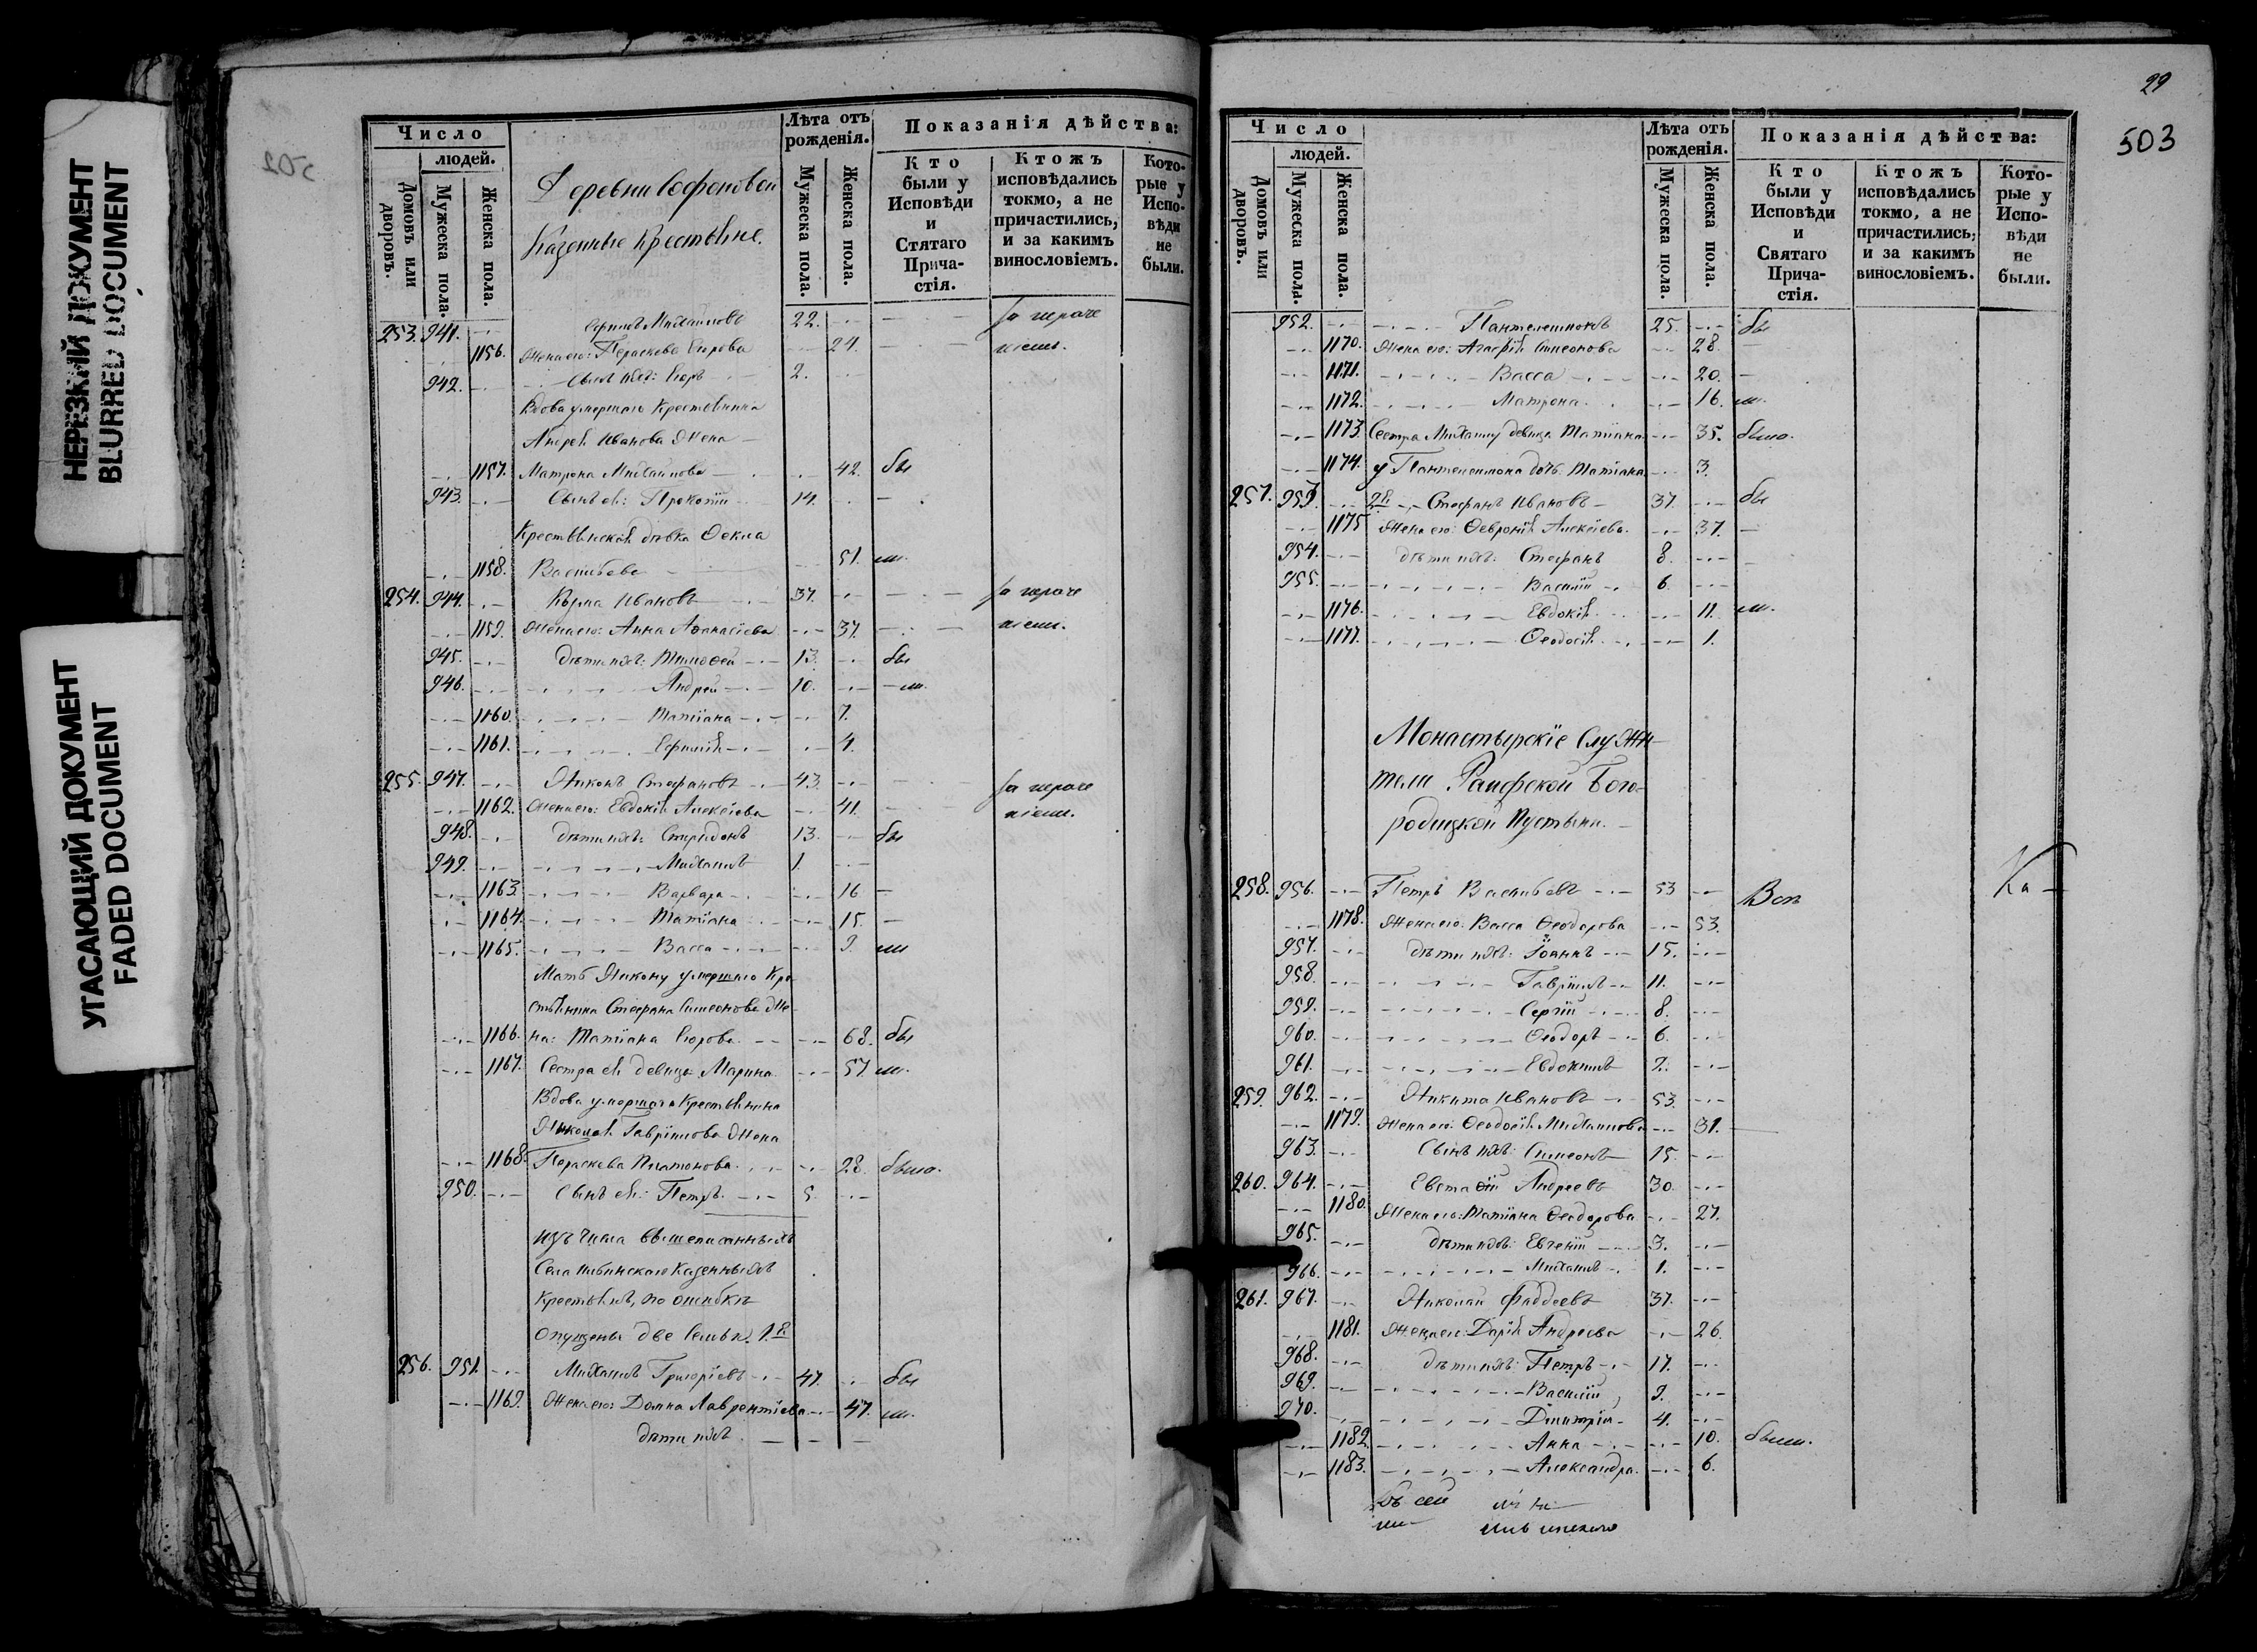 НЕРЕЗКИЙ ДОКУМЕНТ
BLURRED DOCUMENT
УГАСАЮЩИЙ ДОКУМЕНТ
FADED DOCUMENT
502
Число
людей.
Домовъ или дворовъ.
Мужеска пола.
Женска пола.
Лѣта отъ рожденія.
Мужеска пола.
Женска пола.
Показанія дѣйства:
Кто были у Исповѣди и Стятаго Прича-стія.
Ктожъ исповѣдались токмо, а не причастились, и за какимъ винословіемъ.
Кото-рые у Испо-вѣди не были.
Деревни Софоновой
Казенные Крестьяне.
253. 941. Михаиловъ 22.
1156. Жена его: Параскева Егорова 24.
942. Сынъ ихъ: Егоръ 2.
Вдова умершаго Крестьянина
Андрея Иванова Жена
1157. Матрона Михаилова 42. бы
943. Сынъ ея: Прокопiй 14.
Крестьянская дѣвка Өекла
1158. Васильева 51. ли.
254. 944. Козма Ивановъ 37.
1159. Жена его: Анна Аөанасiева 37.
945. Дѣти ихъ: Тимоөей 13. бы
946. Андрей 10. ли.
1160. Татiана 7.
1161. Ефимiя 4.
255. 947. Никонъ Стефановъ 43.
1162. Жена его: Евдокiя Алексiева 41.
948. Дѣти ихъ: Спиридонъ 13. бы
949. Михаилъ 1.
1163. Варвара 16
1164. Татiана 15.
1165. Васса 9. ли
Мать Никону умершаго Кре-
стьянина Стефана Симеонова Же-
1166. на: Татiана Егорова 68. бы
1167. Сестра ея девица Марина 57. ли.
Вдова умершаго Крестьянина
Николая Гаврiилова Жена
1168. Параскева Платонова 28. была.
950. Сынъ ея: Петръ 5.
изъ числа вышеписанныхъ
Села Казенныхъ
Крестьянъ, по ошибкѣ
опущены две Семьи. 1.я
256. 951. Михаилъ Григорiевъ 47. бы
1169. Жена его: Домна Лаврентiева 47. ли.
Дѣти ихъ
29
503
Число
людей.
Домовъ или дворовъ.
Мужеска пола.
Женска пола.
Лѣта отъ рожденія.
Мужеска пола.
Женска пола.
Показанія дѣйства:
Кто были у Исповѣди и Святаго Прича-стія.
Ктожъ исповѣдались токмо, а не причастились, и за какимъ винословіемъ.
Кото-рые у Испо-вѣди не были.
952. Пантелеимонъ 25. бы
1170. Жена его: Агафiя Симеонова 28.
1171. Васса 20.
1172. Матрона 16. ли.
1173. Сестра Михаилу девица Татiана 35. была.
1174. у Пантелеимона дочь Татiана 3.
257. 953. 2я Стефанъ Ивановъ 37. бы
1175 Жена его: Өевронiя Алексiева 37.
954. Дѣти ихъ: Стефанъ 8.
955. Василiй 6.
1176. Евдокiя 11. ли.
1177. Өеодосiя 1.
Монастырскiе Служи-
тели Раифской Бого-
родицкой Пустыни.
258. 956. Петръ Васильевъ 53 Всѣ
1178. Жена его: Васса Өеодорова 53.
957. Дѣти ихъ: Iоаннъ 15.
958. Гаврiилъ 11.
959. Сергiй 8.
960. Өеодоръ 6.
961. Евдокимъ 2.
259. 962. Никита Ивановъ 53.
1179. Жена его: Өеодосiя Михаилова 31.
963. Сынъ ихъ: Симеонъ 15.
260. 964. Андреевъ 30.
1180. Жена его: Татiана Өеодорова 27.
965. Дѣти ихъ: Евгенiй 3.
966. Михаилъ 1.
261. 967. Николай Фаддеевъ 37.
1181. Жена его: Дарiя Андреева 26.
968. Дѣти ихъ: Петръ 17.
969. Василiй 9.
970. Димитрiй 4.
1182 Анна 10. были.
1183. Александра 6.
Ка